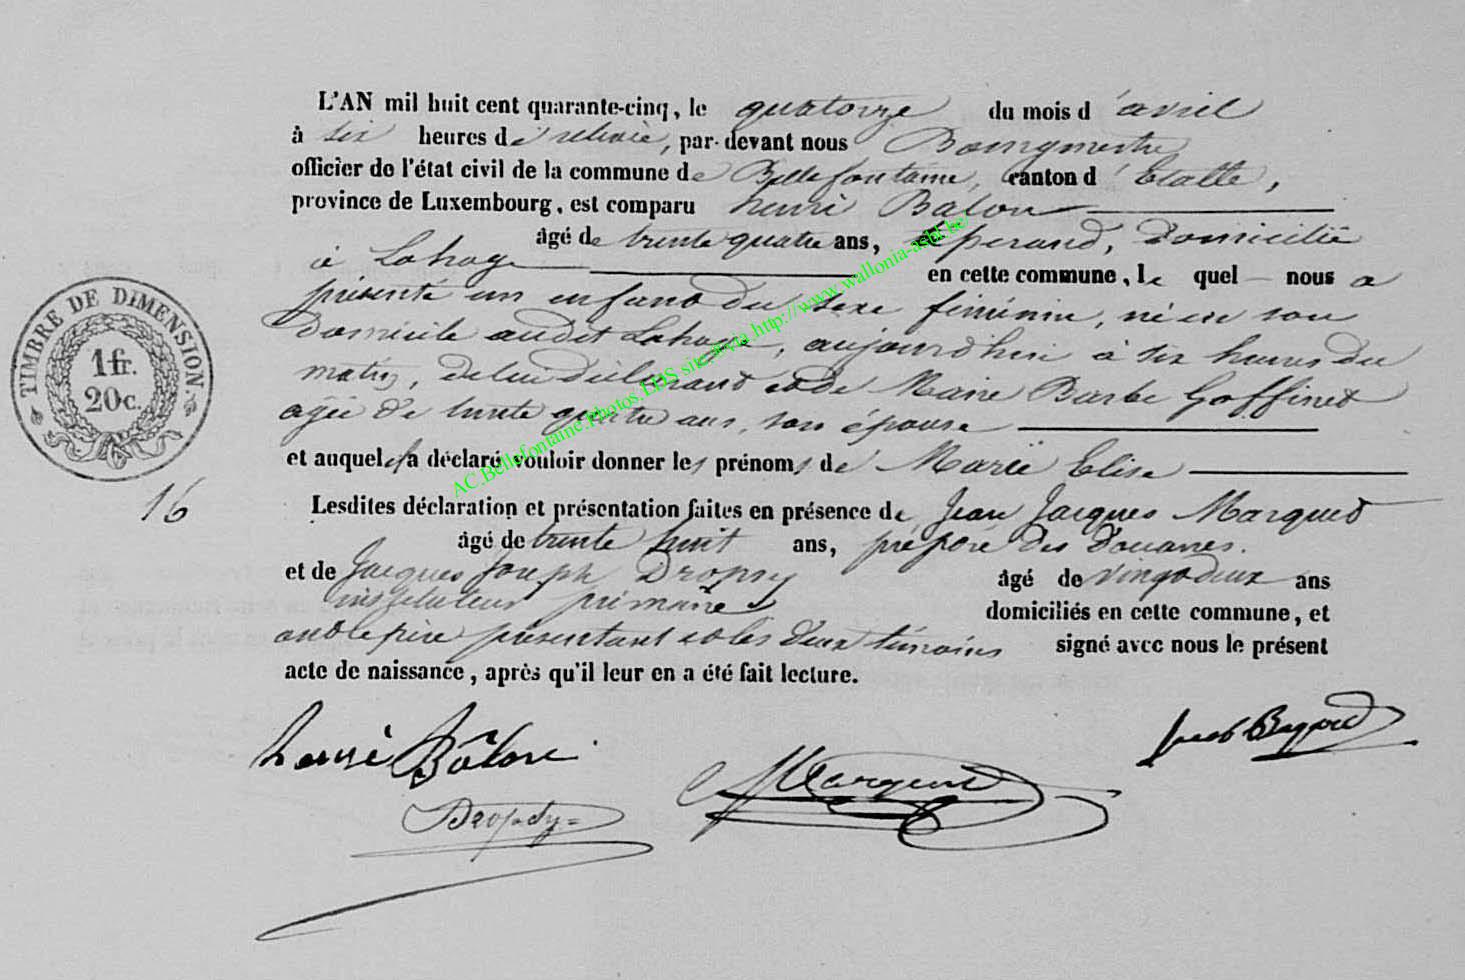 L'AN mil huit cent quarante-cinq, le quatorze du mois d'avril
à six heures de relevée, par-devant nous Bourgmestre
officier de l'état civil de la commune de Bellefontaine, canton d'Etalle,
province de Luxembourg, est comparu henri Balon
âgé de trente quatre ans, domicilié
à Lahage en cette commune, le quel nous a
présenté un enfant du sexe féminin, né en son
domicile audit Lahage, aujourdhui à six heures du
matin, de lui déclarant et de Marie Barbe Goffinet
agée de trente quatre ans, son épouse
et auquel il a déclaré vouloir donner les prénoms de Marie Elise
16
Lesdites déclaration et présentation faites en présence de Jean Jacques Marquet
âgé de trente huit ans, préposé des Douanes.
et de Jacques Joseph Dropsy âgé de vingt deux ans
instituteur primaire domiciliés en cette commune, et
ont le père présentant et les deux témoins signé avec nous le présent
acte de naissance, après qu'il leur en a été fait lecture.
henri Bâlon
Marquet
Dropsy
TIMBRE DE DIMENSION.
1 fr.
20c.
AC.Bellefontaine.Photos.LDS site via http://www.wallonia-asbl.be/